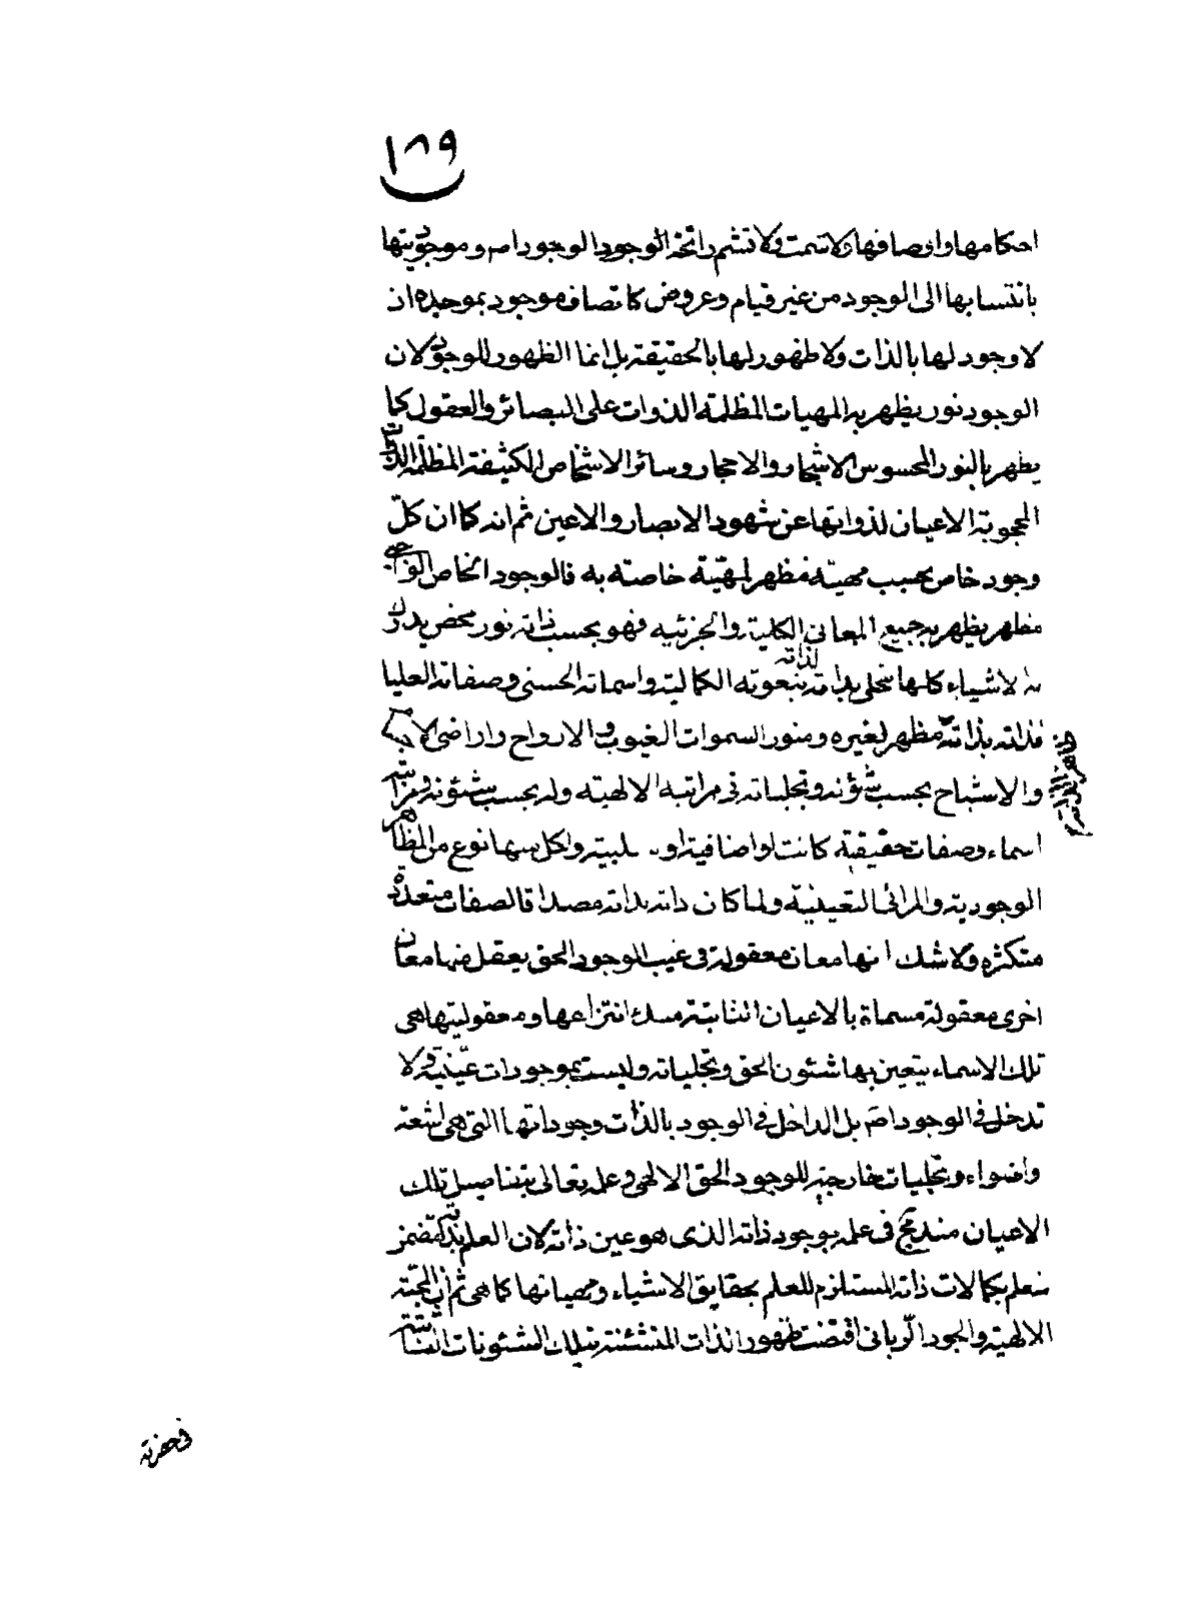 ١٨٩
احكامها واوصافها ولا شمت ولا تشم رائحة الوجود الوجود اصم وموجوديتها
بانتسابها الى الوجود من غير قيام وعروض كاتصاف موجود بموجده ان
لا وجود لها بالذات ولا ظهور لها بالحقيقة بل انما الظهور للوجود لان
الوجود نور يظهر به المهيات المظلمة الذوات على البصائر والعقول كما
يظهر بالنور المحسوس الاشجار والاحجار وسائر الاشخاص الكثيفة المظلمة الذات
المحجوبة الاعيان لذواتها عن شهود الابصار والاعين ثم انه كما ان كلّ
وجود خاص بحسب مهيته مظهر لمهيّة خاصته به فالوجود الخاص الواجبى
مظهر يظهر به جميع المعانى الكلية والجزئيه فهو بحسب ذاته نور محض يدرك
به الاشياء كلها تتجلى بذاته لذاته بنعوته الكمالية واسمائه الحسنى وصفاته العليا
فذاته بذاته مظهر لغيره ومنور السموات الغيوب والارواح واراضى
والاشباح بحسب شؤنه وتجلياته فى مراتبه الالهيته وله بحسب شئونه ومراتبه
اسماء وصفات حقيقية كانت او اضافية او سلبية ولكل منها نوع من المظاهر
الوجودية والمرائى التعينية ولما كان ذاته بذاته مصداقا لصفات متعددة
متكثره ولا شك انها معان معقولة فى غيب الوجود الحق يعقل منها معان
اخرى معقولة مسماة بالاعيان الثابتة مبدء انتزاعها ومعقوليتها هى
تلك الاسماء يتعين بها شئون الحق وتجلياته وليست بموجودات عينية ولا
تدخل فى الوجود اصم بل الداخل فى الوجود بالذات وجوداتها التى هى اشعة
واضواء وتجليات خارجية للوجود الحق الالهى وعلمه تعالى بتفاصيل تلك
الاعيان مندمج فى علمه بوجود ذاته الذى هو عين ذاته لان العلم بذاته متضمن
للعلم بكمالات ذاته المستلزم للعلم بحقايق الاشياء ومهياتها كما هى ثم ان المحبّة
الالهية والجود الربانى اقتضت ظهور الذات المنشئته بتلك الشئونات الثابتة
فى حضرته